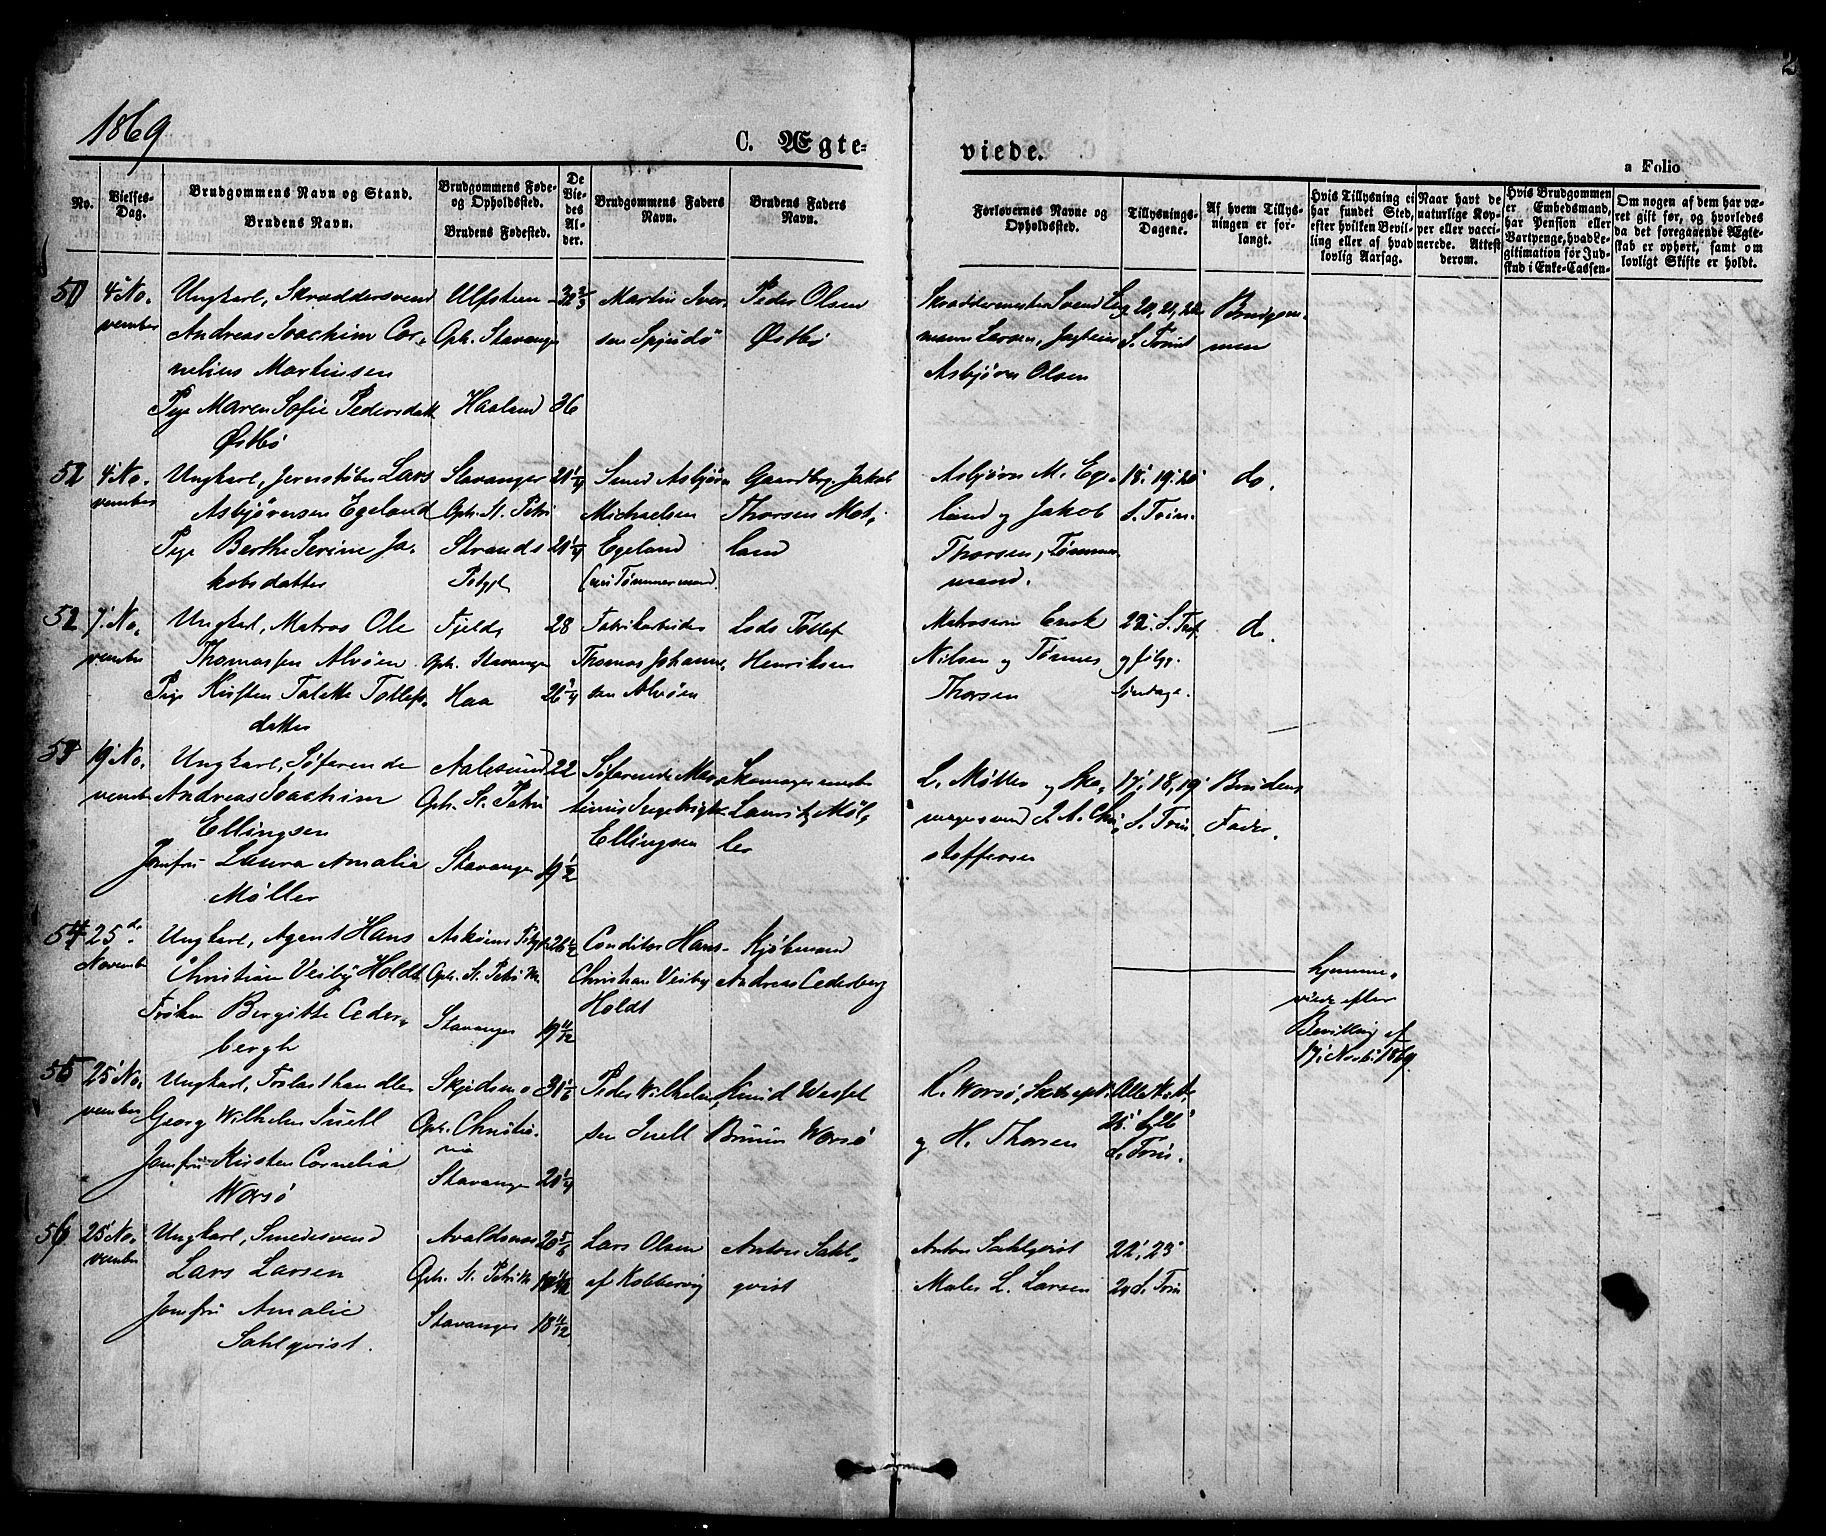 1869
2
C. Ægte-
viede.
a Folio
No.
Vielses-
Dag.
Brudgommens Navn og Stand.
Brudens Navn.
Brudgommens Føde-
og Opholdsted.
Brudens Fødested.
De
Vie-
des
Al-
der.
Brudgommens Faders
Navn.
Brudens Faders
Navn.
Forlovernes Navne og
Opholdssted.
Tillysnings-
Dagene.
Af hvem Tillys-
ningen er for-
langt.
Hvis Tillysning ei
har fundet Sted,
efter hvilken Bevil-
ling eller af hvad
lovlig Aarsag.
Naar havt de
naturlige Kop-
per eller vacci-
nerede. Attest
derom.
Hvis Brudgommen
er Embedsmand,
har Pension eller
Vartpenge, hvad Le-
gitimation for Ind-
skud i Enke-Cassen.
Om nogen af dem har væ-
ret gift før, og hvorledes
da det foregaaende Ægte-
skab er ophørt, samt om
lovligt Skifte er holdt.
50
4' No-
vember
Ungkarl, Skræddersvend
Andreas Joachim Cor-
nelius Martinsen
Pige Maren Sofie Pedersdatt
Østbø
Ulfsteen
Oph. Stavanger
Haaland
36
Martin Iver-
sen Spjudø
Peder Olsen
Østbø
Skræddermester Svend Eg
mann Larsen, Jagteier
Asbjørn Olsen
20, 21, 22
S. Trinit
Brudgom-
men
52
4' No-
vember
Ungkarl, Jernstøber Lars
Asbjørnsen Egeland
Pige Berthe Serine Ja-
kobsdatter
Stavanger
Oph. St. Petri
Strands
Prstgjl
21 1/4
21 1/4
Smed Asbjørn
Michaelsen
Egeland
Tømmermand)
Gaardbrg. Jakob
Thorsen Mot-
land
Asbjørn M. Ege-
land og Jakob
Thorsen, Tømmer-
mand.
18' 19' 20'
S. Trin.
do.
52
7' No-
vember
Ungkarl, Matros Ole
Thomassen Alvøen
Pige Kirsten Talette Tollefs-
datter
Fjelds
Oph. Stavanger
Haa
28
26 3/4
Fabrikarbeider
Thomas Johanne-
sen Alvøen
Lods Tollef
Henriksen
Matroserne Enok
Nilsen og Tønnes
Thorsen
22' S. Trf.
og følg.
Søndage.
do.
53
19' No-
vember
Ungkarl, Søfarende
Andreas Joachim
Ellingsen
Jomfru Laura Amalia
Møller
Aalesund
Oph. St. Petri
Stavanger
22
19 1/2
Søfarende Mar-
tinus Ingebrigt
Ellingsen
Skomagermester
Lauritz Møl-
ler
L. Møller og Sko-
magersvend J. A. Chri-
stoffersen
17' 18, 19'
S. Trin.
Brudens
Fader.
54
25de
November
Ungkarl, Agent Hans
Christian Veiby Holdt
Frøken Birgitte Ceder-
bergh
Askøens Prstgj
Oph. St. Petri M.
Stavanger
26 1/2
19 11/12
Conditor Hans
Christian Veiby
Holdt
Kjøbmand
Andreas Cederberg
hjemme-
viede efter
Bevilling af
17' Novbr 1869.
55
25' No-
vember
Ungkarl, Trælasthandler
Georg Wilhelm Juell
Jomfru Kirsten Cornelia
Worsø
Skjedsmo
Oph. Christia-
nia
Stavanger
31 1/6
21 1/4
Peder Wilhelm-
sen Juell
Knud Wessel
Bruun Worsø
K. Worsø, Skibscapt.
og H. Thorsen
S. Trin.
56
25' No-
vember
Ungkarl, Smedesvend
Lars Larsen
Jomfru Amalie
Sahlqvist.
Avaldsnes
Oph. St. Petri M
Stavanger
20 5/6
18 11/12
Lars Olsen
af Kobbervig
Anton Sahl-
qvist
Anton Sahlqvist
Maler L. Larsen
22', 23'
24 S. Trin